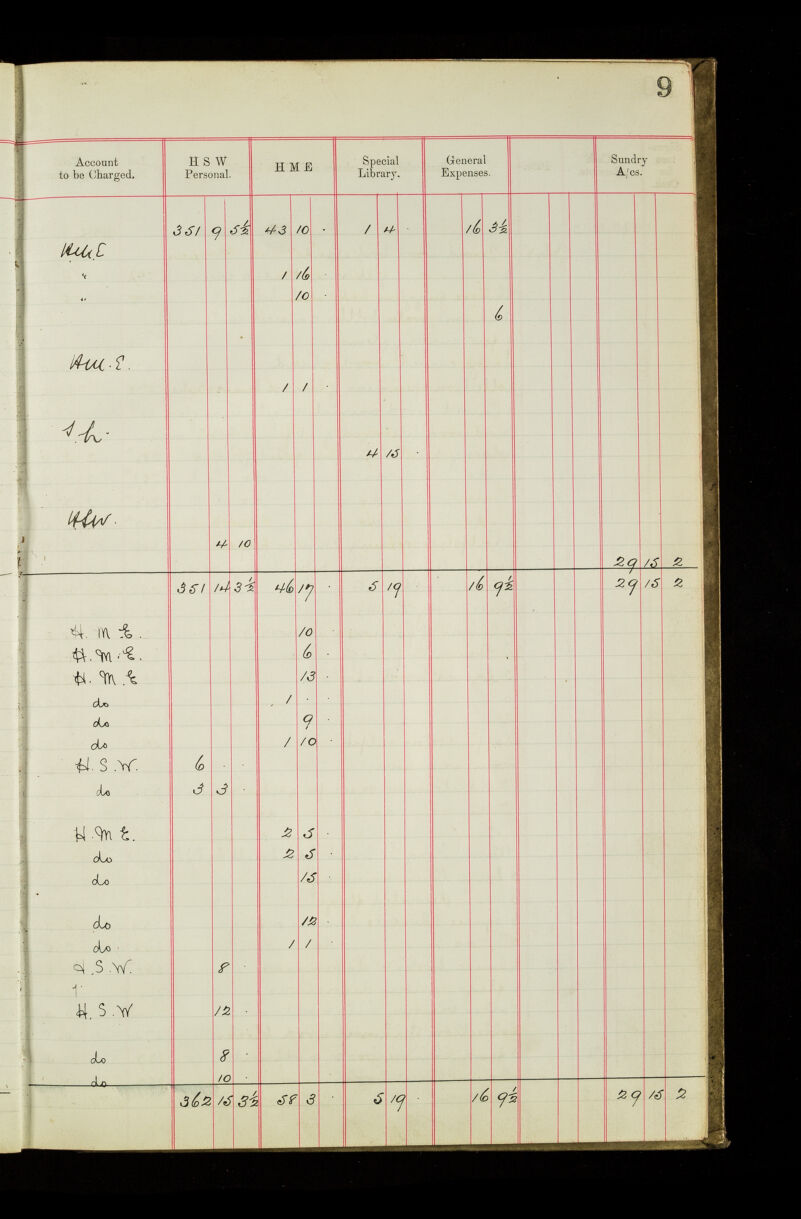 9
Account to be Charged. H S W Personal. H M E Special Library. General Expenses. Sundry A/cs.
351 9 5½ 43 10 · 1 4 · 16 3½
HME
" 1 16 ·
" 10 ·
6
HM.E.
1 1 ·
4 15 ·
HSW.
4 10
29 15 2
351 14 3½ 46 17 · 5 19 · 16 9½ 29 15 2
H. M E. 10 ·
H. M. E. 6 ·
H. M. E 13 ·
do 1 · ·
do 9 ·
do 1 10 ·
H. S. W. 6 · ·
do 3 3 ·
H. M E. 2 5 ·
do 2 5 ·
do 15 ·
do 12 ·
do 1 1 ·
H. S. W. 8 ·
H. S. W 12 ·
do 8 ·
do 10 ·
362 15 3½ 58 3 · 5 19 · 16 9½ 29 15 2